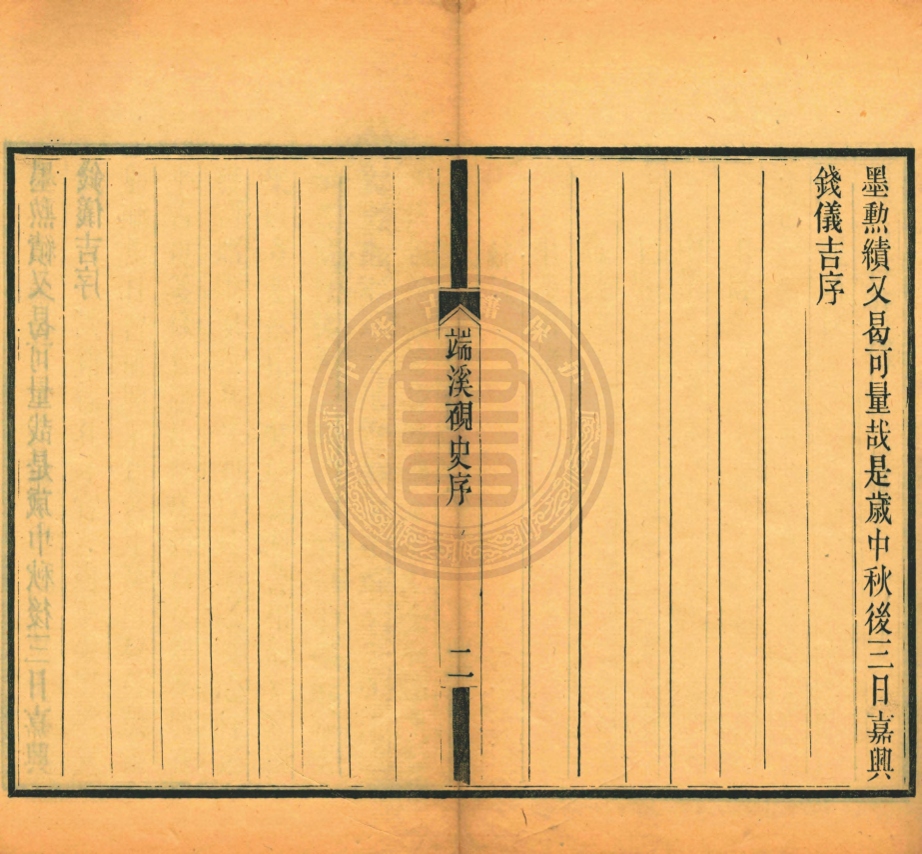 墨勲績又曷可量哉是歲中秋後三日嘉興
錢儀吉序
端溪硯史序
二